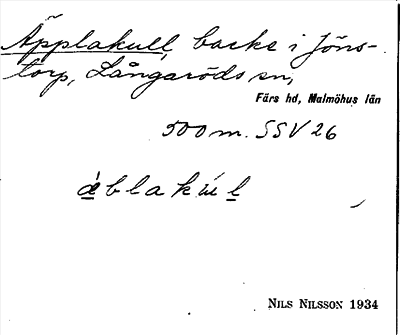 Äpplakull, backe i Jöns-
torp, Långaröds sn,
Färs hd, Malmöhus län
500 m. SSV 26
æ̀blakúl
Nils Nilsson 1934